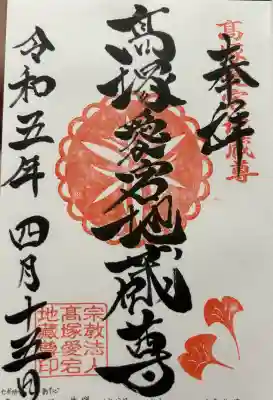 奉拝
高塚愛宕地蔵尊
令和五年四月十五日
宗教法人
高塚愛宕
地蔵尊印